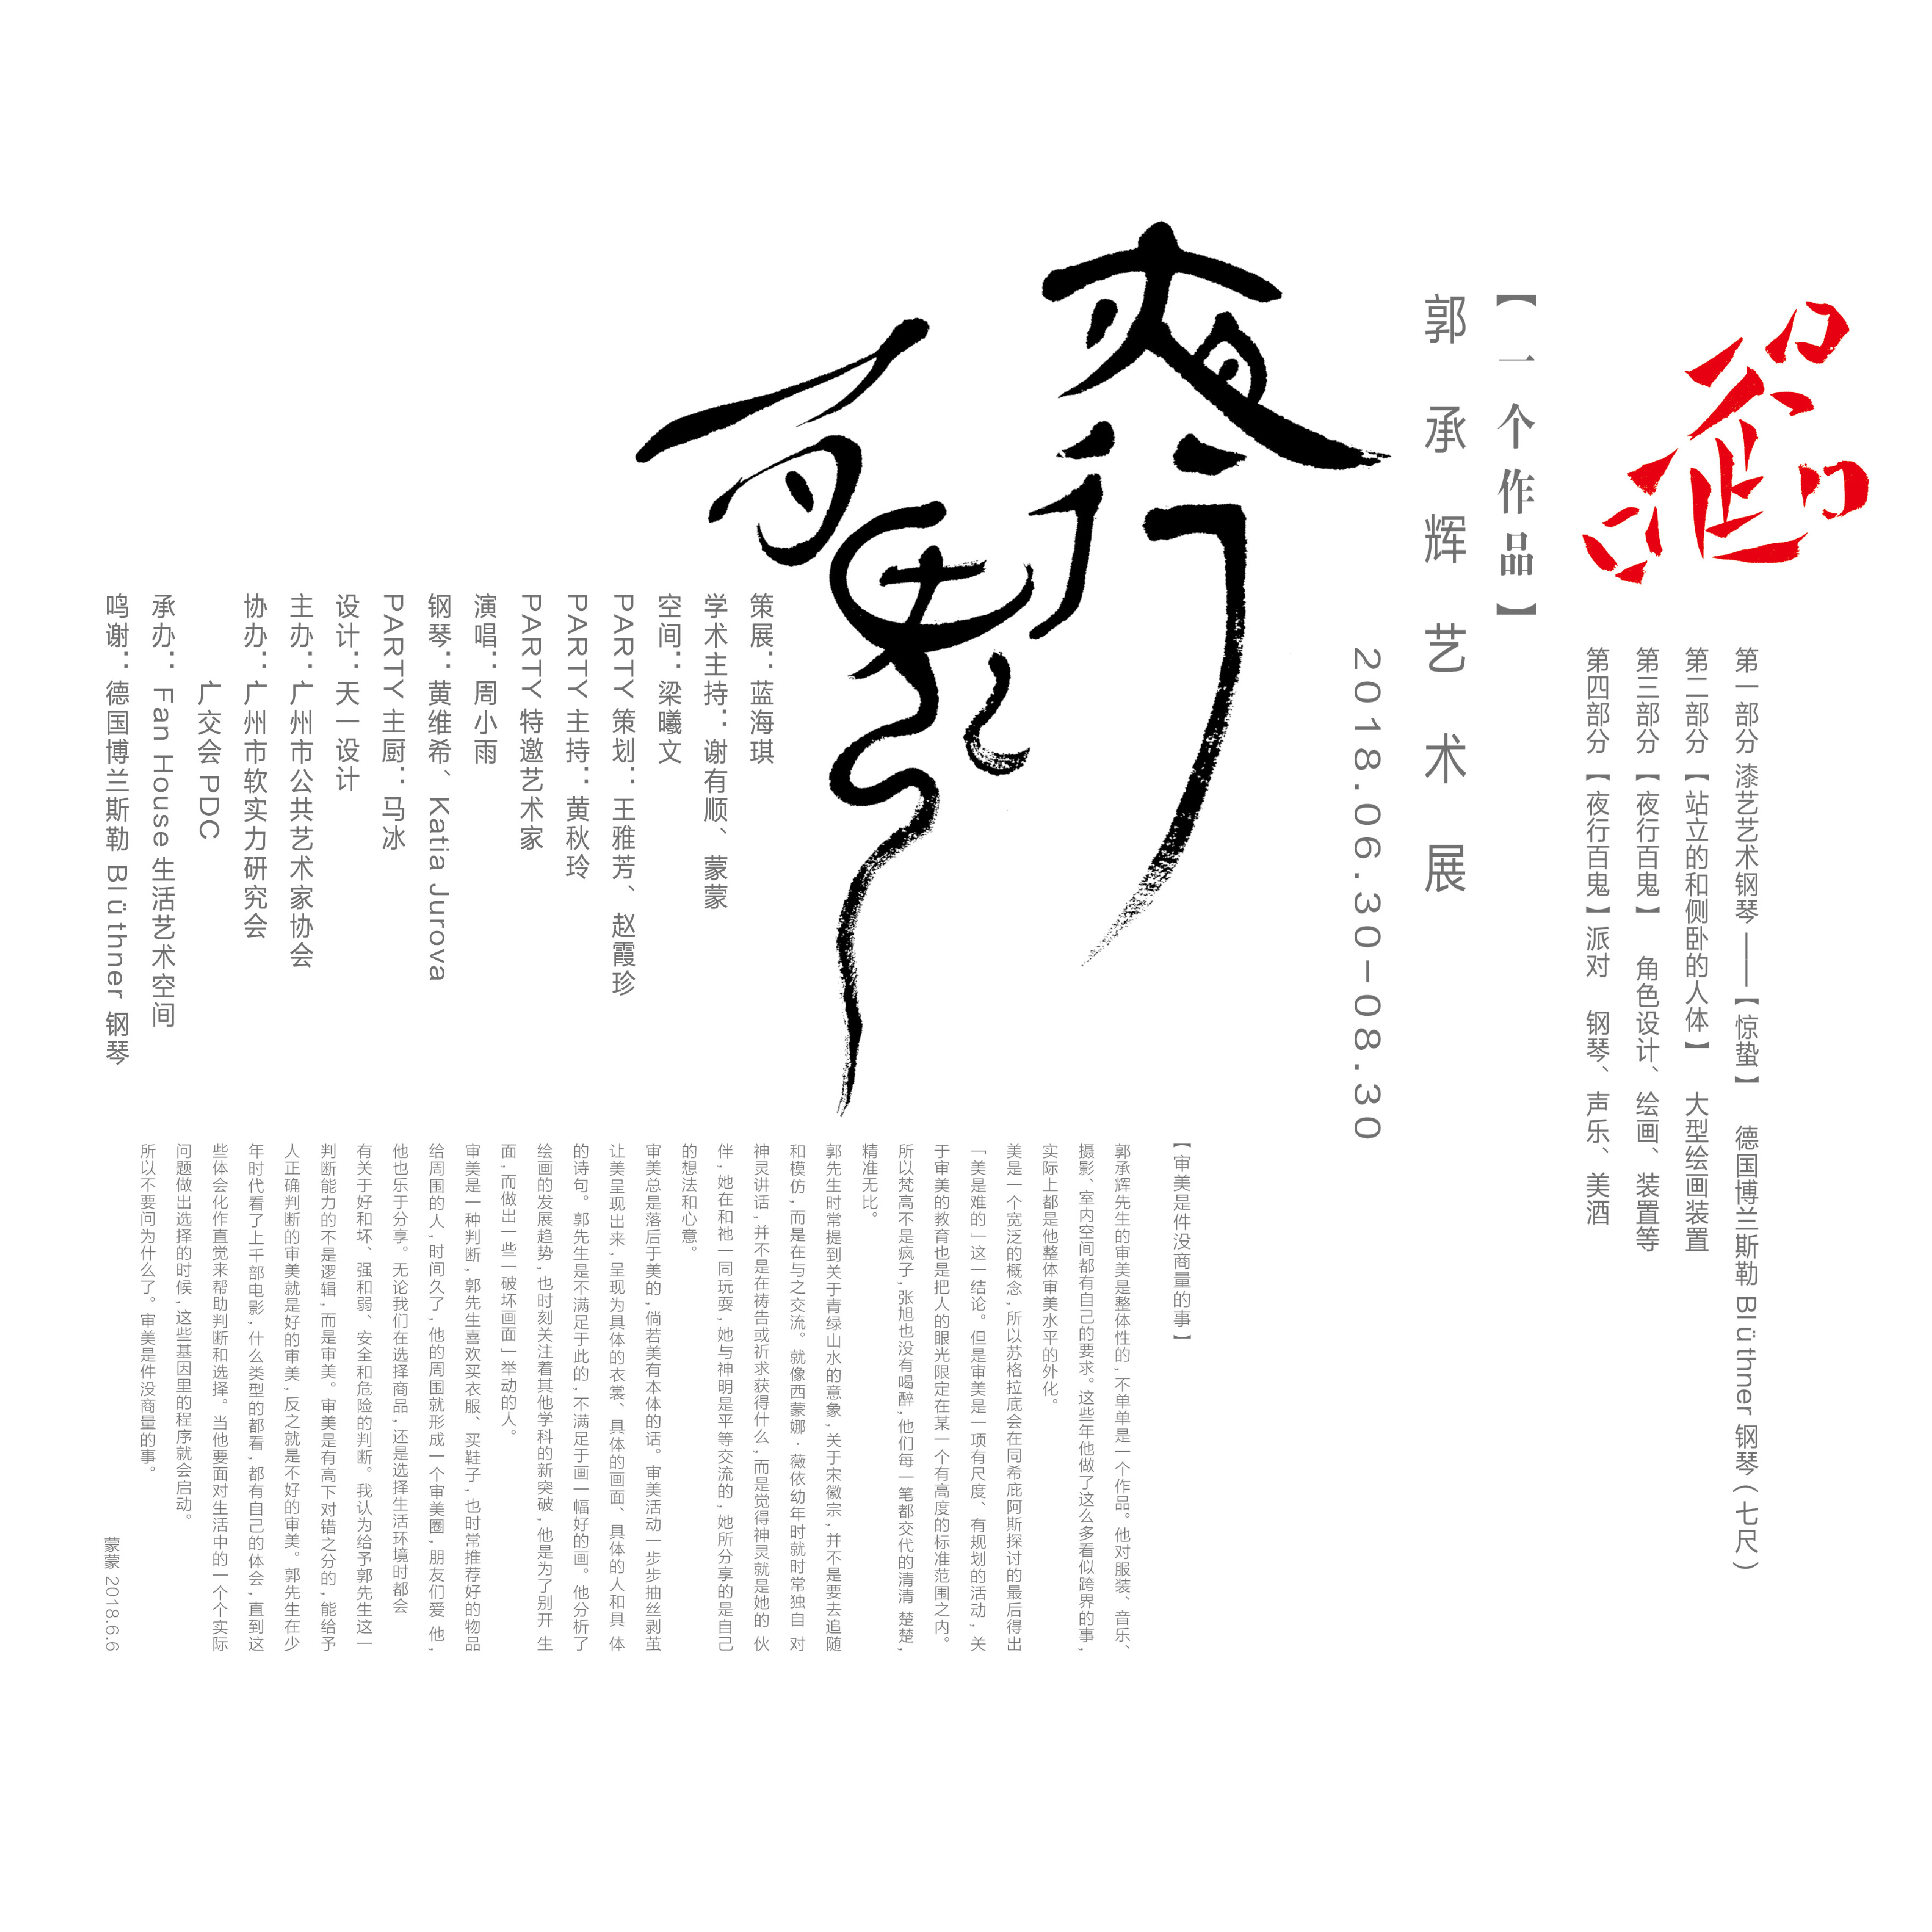 第一部分 漆艺艺术钢琴——【惊蛰】 德国博兰斯勒 Blüthner 钢琴(七尺)
第二部分【站立的和侧卧的人体】 大型绘画装置
第三部分【夜行百鬼】 角色设计、绘画、装置等
第四部分【夜行百鬼】派对 钢琴、声乐、美酒
【一个作品】
郭承辉艺术展
2018.06.30-08.30
夜行
百鬼
策展：蓝海琪
学术主持：谢有顺、蒙蒙
空间：梁曦文
PARTY 策划：王雅芳、赵霞珍
PARTY 主持：黄秋玲
PARTY 特邀艺术家
演唱：周小雨
钢琴：黄维希、Katia Jurova
PARTY 主厨：马冰
设计：天一设计
主办：广州市公共艺术家协会
协办：广州市软实力研究会
广交会 PDC
承办： Fan House 生活艺术空间
鸣谢：德国博兰斯勒 Blüthner 钢琴
【审美是件没商量的事】
郭承辉先生的审美是整体性的,不单单是一个作品。他对服装、音乐、
摄影、室内空间都有自己的要求。这些年他做了这么多看似跨界的事,
实际上都是他整体审美水平的外化。
美是一个宽泛的概念,所以苏格拉底会在同希庇阿斯探讨的最后得出
「美是难的」这一结论。但是审美是一项有尺度、有规划的活动,关
于审美的教育也是把人的眼光限定在某一个有高度的标准范围之内。
所以梵高不是疯子,张旭也没有喝醉,他们每一笔都交代的清清 楚楚,
精准无比。
郭先生时常提到关于青绿山水的意象,关于宋徽宗,并不是要去追随
和模仿,而是在与之交流。就像西蒙娜·薇依幼年时就时常独自 对
神灵讲话,并不是在祷告或祈求获得什么,而是觉得神灵就是她的 伙
伴,她在和祂一同玩耍,她与神明是平等交流的,她所分享的是自己
的想法和心意。
审美总是落后于美的,倘若美有本体的话。审美活动一步步抽丝剥茧
让美呈现出来,呈现为具体的衣裳、具体的画面、具体的人和具 体
的诗句。郭先生是不满足于此的,不满足于画一幅好的画。他分析了
绘画的发展趋势,也时刻关注着其他学科的新突破,他是为了别开 生
面,而做出一些「破坏画面」举动的人。
审美是一种判断,郭先生喜欢买衣服、买鞋子,也时常推荐好的物品
给周围的人,时间久了,他的周围就形成一个审美圈,朋友们爱 他,
他也乐于分享。无论我们在选择商品,还是选择生活环境时都会
有关于好和坏、强和弱、安全和危险的判断。我认为给予郭先生这一
判断能力的不是逻辑,而是审美。审美是有高下对错之分的,能给予
人正确判断的审美就是好的审美,反之就是不好的审美。郭先生在少
年时代看了上千部电影,什么类型的都看,都有自己的体会,直到这
些体会化作直觉来帮助判断和选择。当他要面对生活中的一个个实际
问题做出选择的时候,这些基因里的程序就会启动。
所以不要问为什么了。审美是件没商量的事。
蒙蒙 2018.6.6